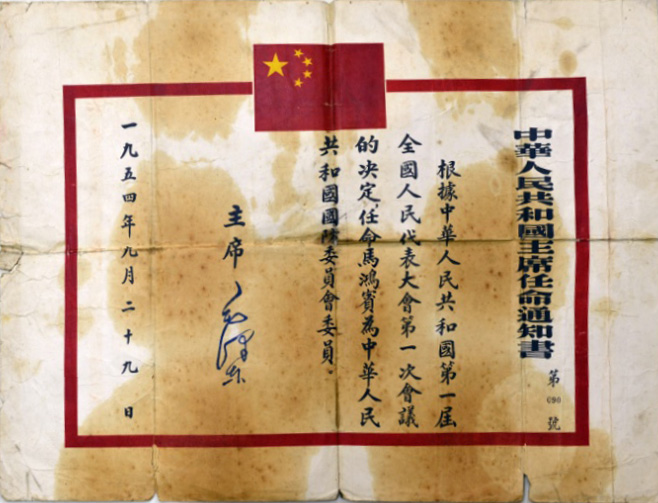 中華人民共和國主席任命通知書
第690號
根據中華人民共和國第一屆
全國人民代表大會第一次會議
的決定，任命馬鴻賓為中華人民
共和國國防委員會委員．
主席 毛澤东
一九五四年九月二十九日